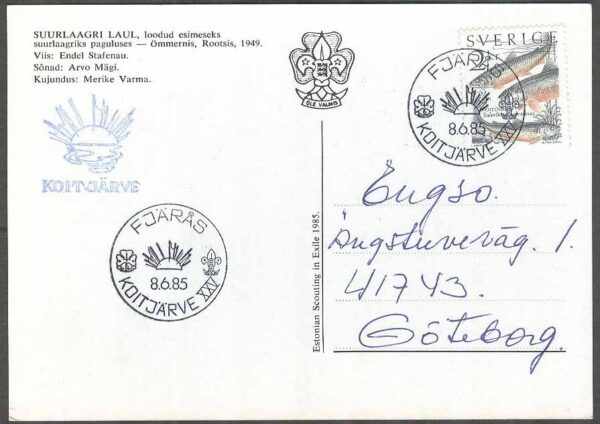 SUURLAAGRI LAUL, loodud esimeseks
suurlaagriks paguluses — ömmernis, Rootsis, 1949.
Viis: Endel Stafenau.
Sõnad: Arvo Mägi.
Kujundus: Merike Varma.
OLE VALMIS
SVERIGE
FJÄRÅS
8.6.85
KOITJÄRVE XXV
KOIT-JÄRVE
FJÄRÅS
8.6.85
KOITJÄRVE XXV
Estonian Scouting in Exile 1985.
Engso.
Ängstuveväg. 1.
41743.
Göteborg.